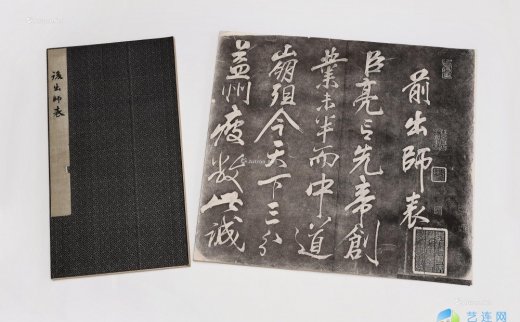 後出師表
前出師表
臣亮言先帝創
業未半而中道
崩殂今天下三分
益州疲敝此誠
艺连网